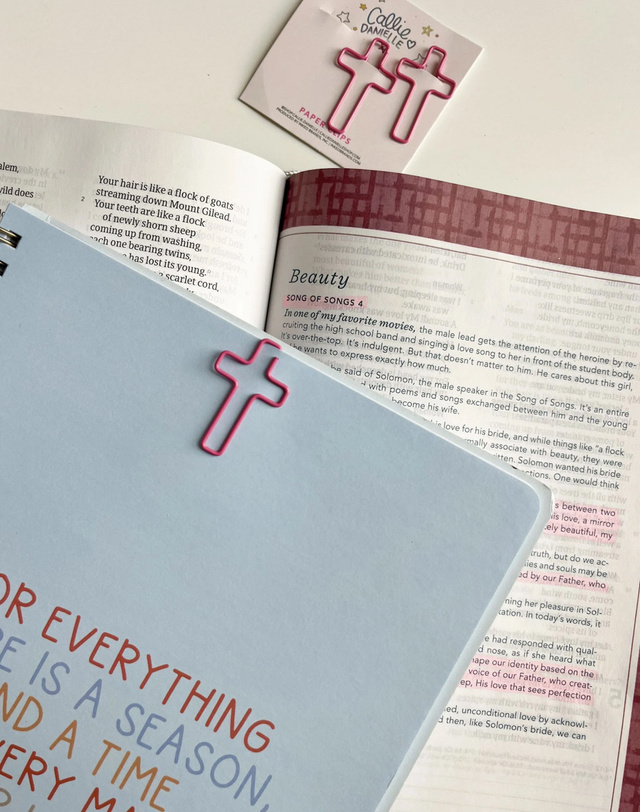 Callie
DANIELLE
PAPER CLIPS
alem,
vild does
Your hair is like a flock of goats
streaming down Mount Gilead.
2 Your teeth are like a flock
of newly shorn sheep
coming up from washing,
each one bearing twins,
has lost its young.
a scarlet cord,
Beauty
SONG OF SONGS 4
In one of my favorite movies, the male lead gets the attention of the heroine by re-
cruiting the high school band and singing a love song to her in front of the student body.
It's over-the-top. It's indulgent. But that doesn't matter to him. He cares about this girl,
he wants to express exactly how much.
be said of Solomon, the male speaker in the Song of Songs. It's an entire
d with poems and songs exchanged between him and the young
become his wife.
is love for his bride, and while things like "a flock
mally associate with beauty, they were
itten. Solomon wanted his bride
ctions. One would think
s between two
is love, a mirror
ely beautiful, my
truth, but do we ac-
ies and souls may be
ed by our Father, who
ning her pleasure in Sol-
tation. In today's words, it
e had responded with qual-
d nose, as if she heard what
ape our identity based on the
voice of our Father, who creat-
ep. His love that sees perfection
ed, unconditional love by acknowl-
d then, like Solomon's bride, we can
OR EVERYTHING
RE IS A SEASON,
ND A TIME
VERY MA